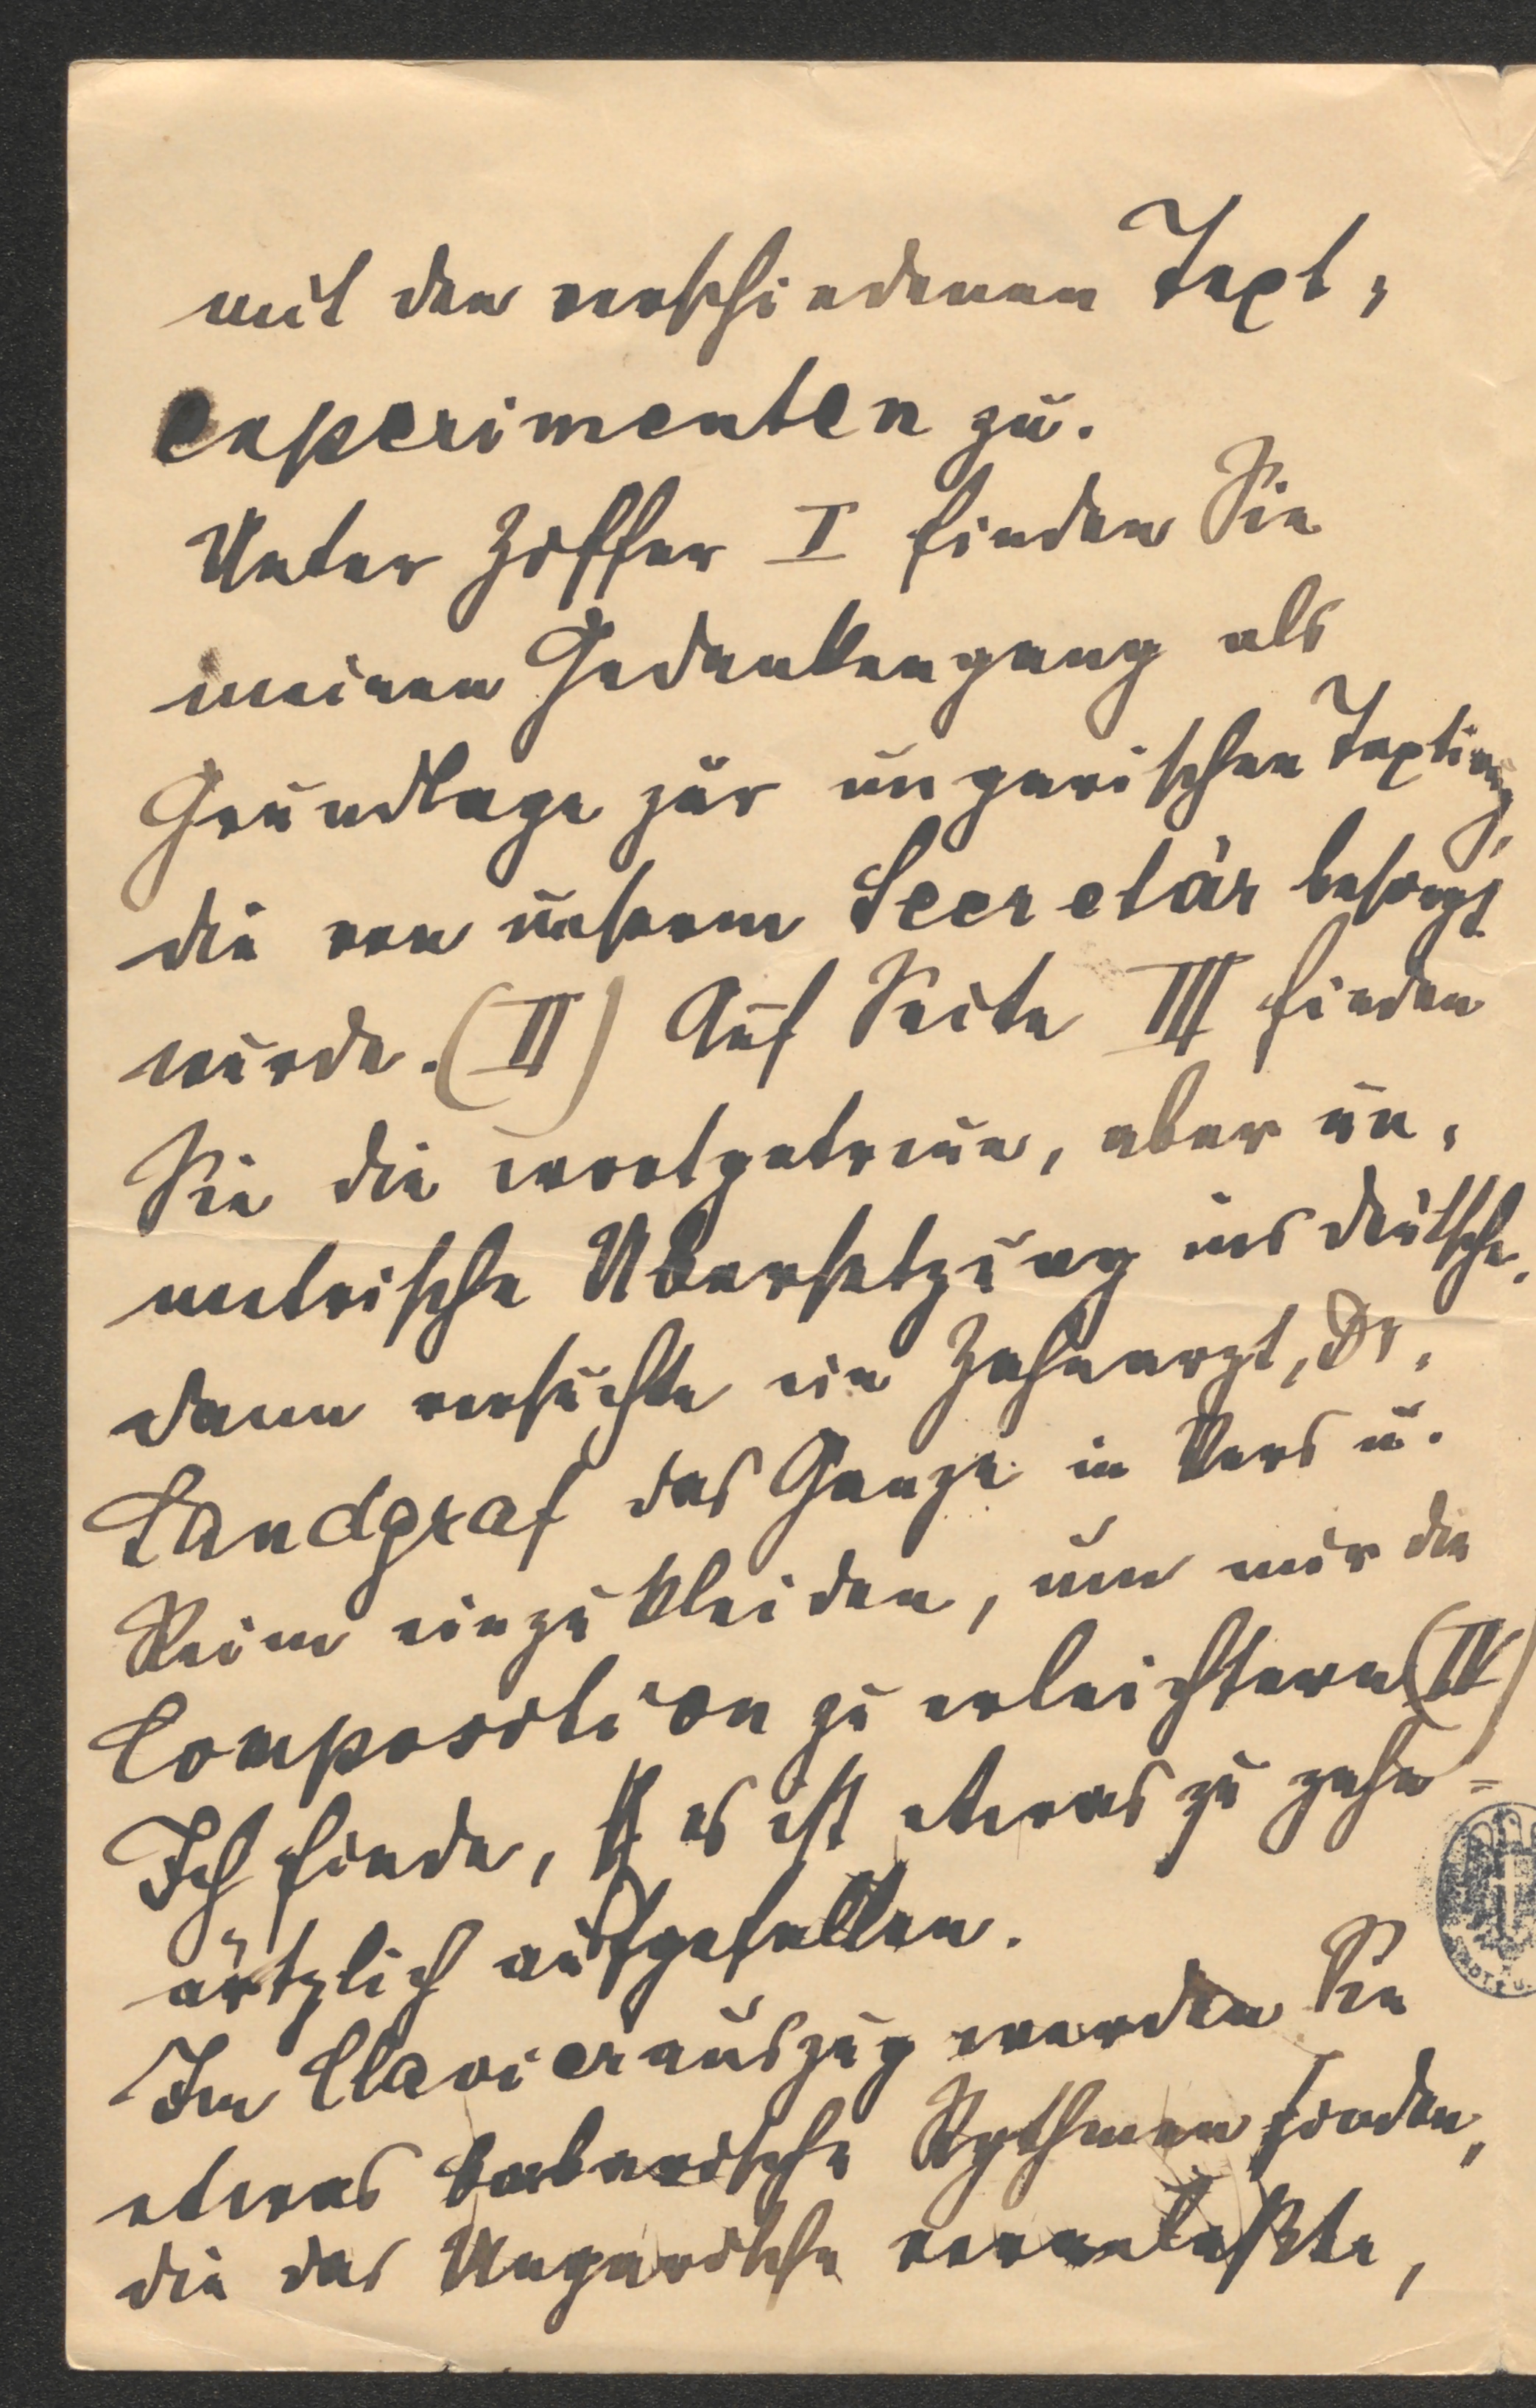 mit den verschiedenen Text-
experimenten zu.
Unter Ziffer I finden Sie
meinen Gedankengang als
Grundlage zur ungarischen Textirung,
die von unserem Secretär besorgt
wurde. (II) Auf Seite III finden
Sie die wortgetreue, aber un-
metrische Übersetzung ins deutsche.
dann versuchte ein Zahnarzt, Dr.
Landgraf das Ganze in Vers u.
Reim einzukleiden, um mir die
Composition zu erleichtern (IV)
Ich finde, es ist etwas zu zahn=
ärtzlich ausgefallen.
Im Clavierauszug werden Sie
etwas barbarische Rythmen finden,
die das Ungarische veranlaßte,